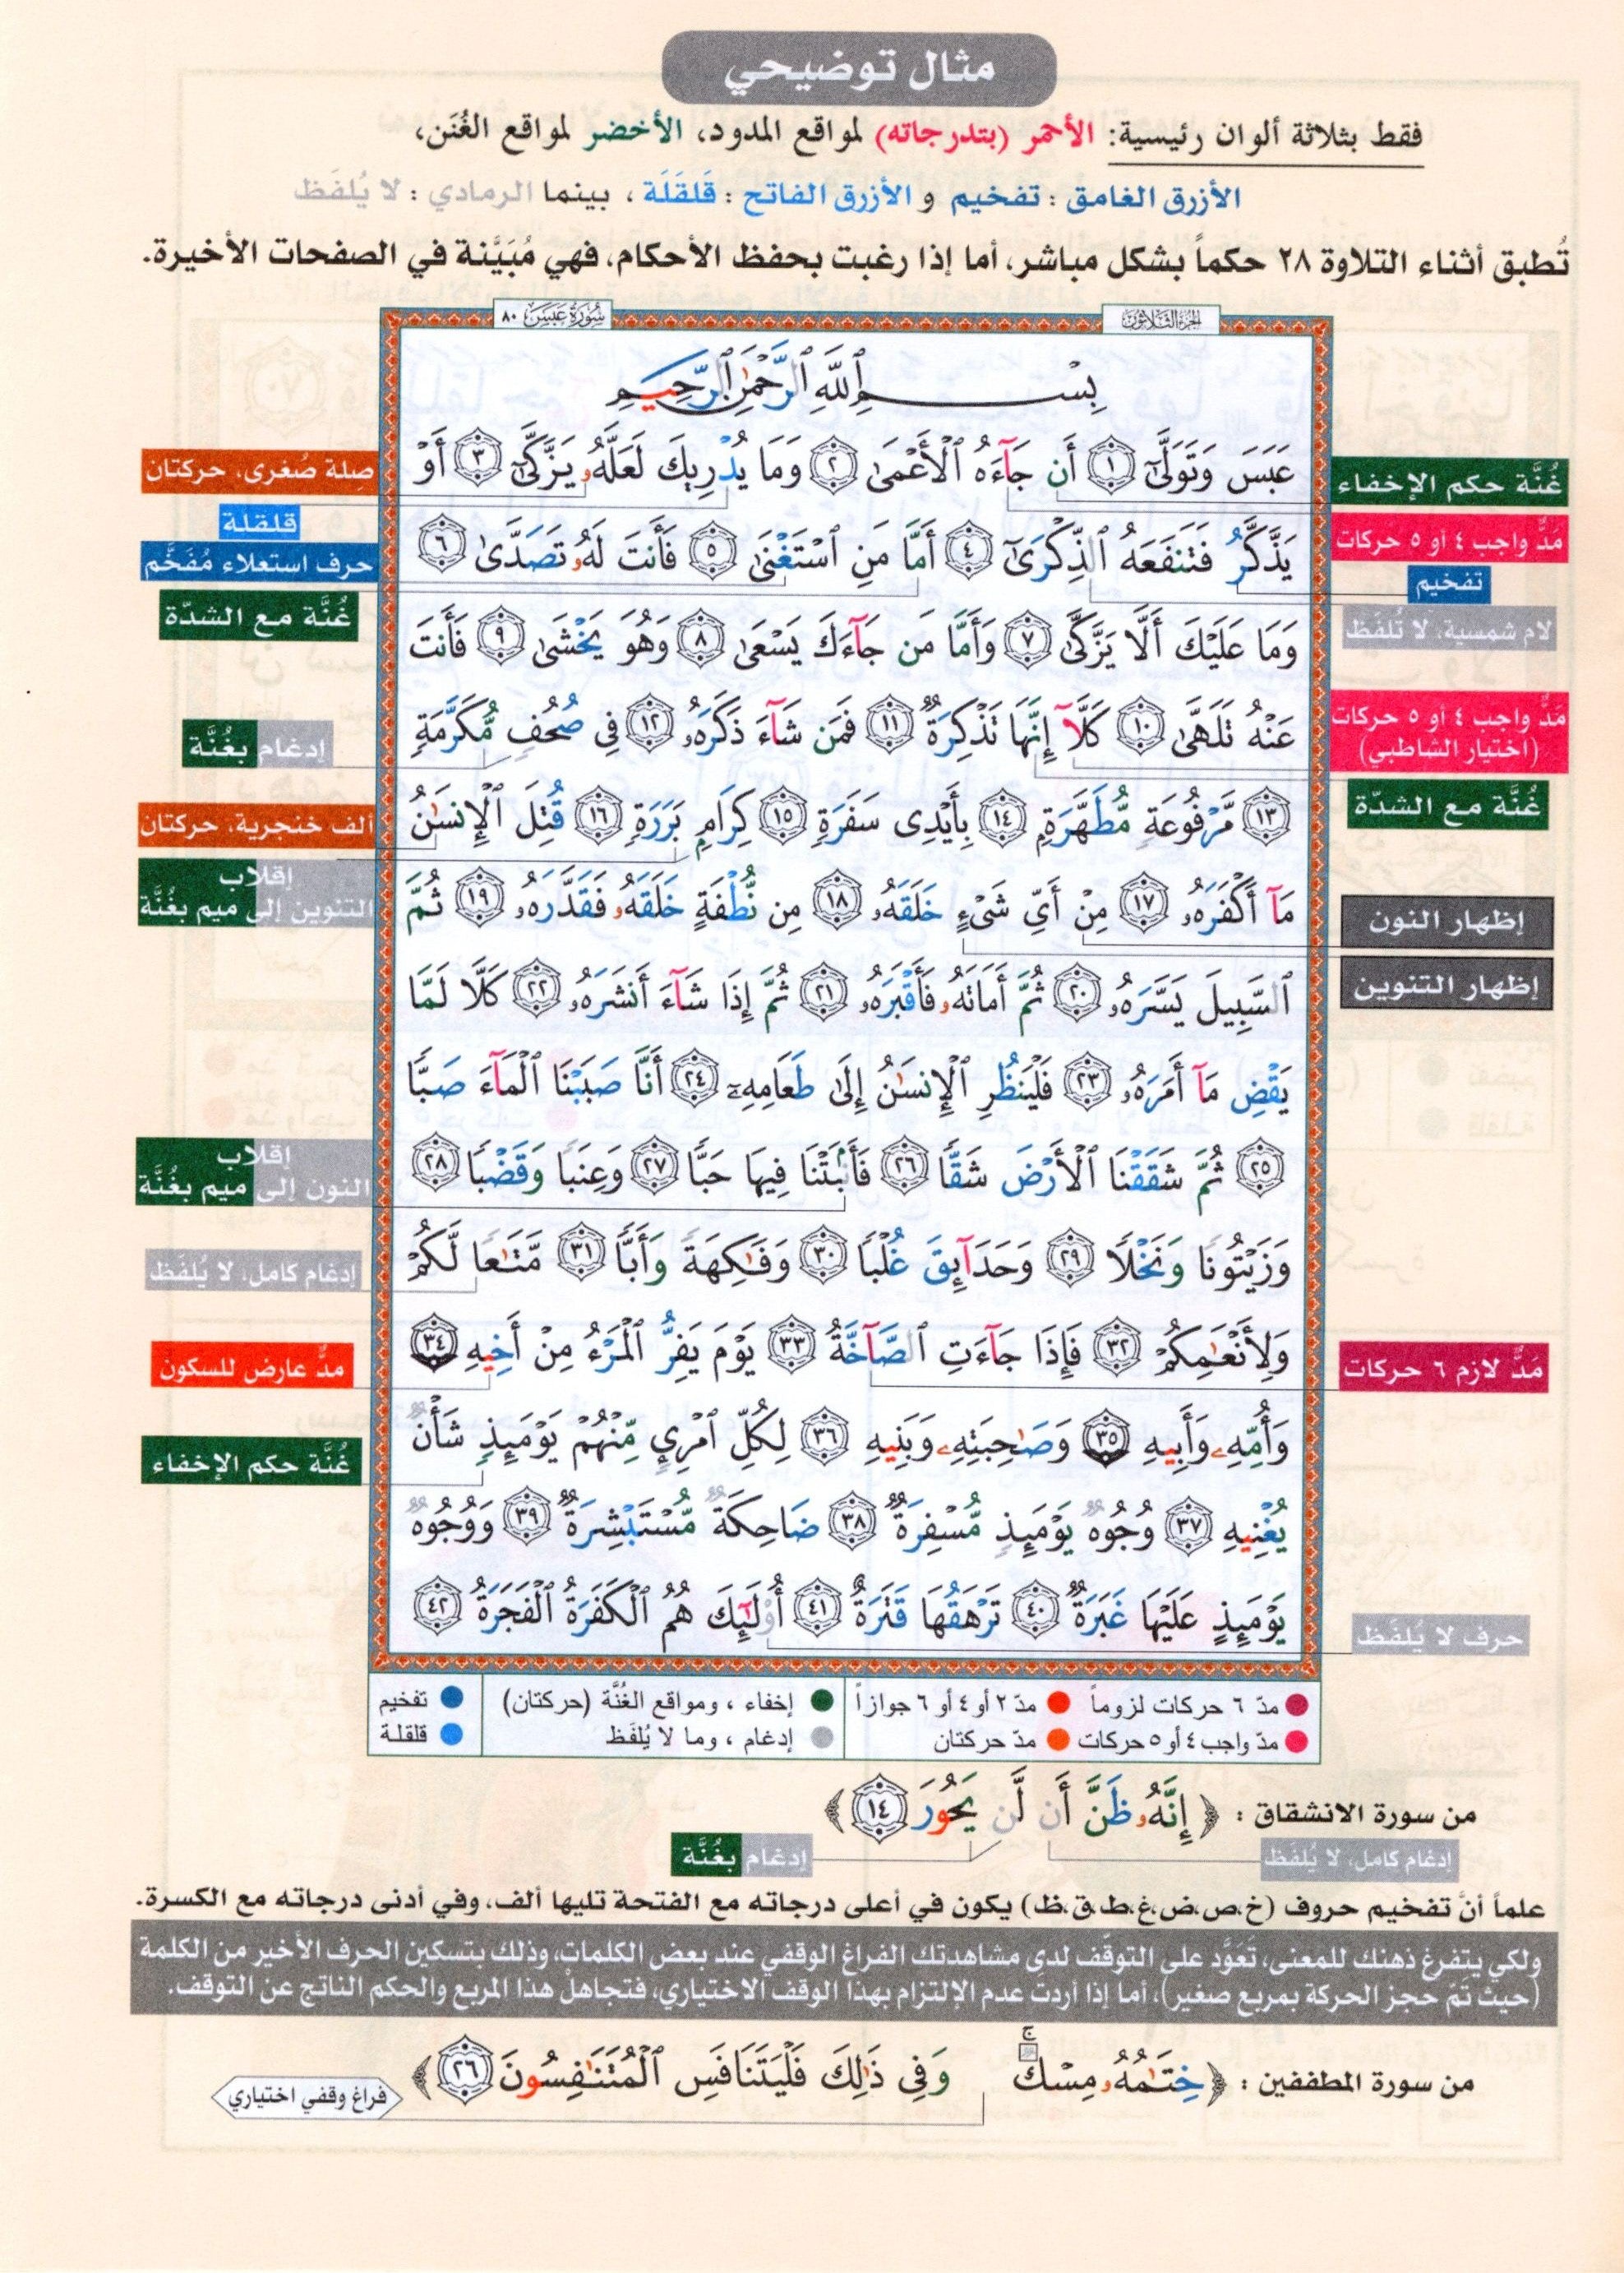 مثال توضيحي
فقط بثلاثة ألوان رئيسية: الأحمر (بتدرجاته) لمواقع المدود، الأخضر لمواقع الغُنَن،
الأزرق الغامق : تفخيم و الأزرق الفاتح : قَلقَلَة ، بينما الرمادي : لا يُلفَظ
تُطبق أثناء التلاوة ٢٨ حكماً بشكل مباشر، أما إذا رغبت بحفظ الأحكام، فهي مُبَيَّنة في الصفحات الأخيرة.
الجزء الثلاثون
سورة عبس ٨٠
بِسْمِ ٱللَّهِ ٱلرَّحْمَٰنِ ٱلرَّحِيمِ
عَبَسَ وَتَوَلَّىٰٓ ١ أَن جَآءَهُ ٱلْأَعْمَىٰ ٢ وَمَا يُدْرِيكَ لَعَلَّهُۥ يَزَّكَّىٰٓ ٣ أَوْ
يَذَّكَّرُ فَتَنفَعَهُ ٱلذِّكْرَىٰٓ ٤ أَمَّا مَنِ ٱسْتَغْنَىٰ ٥ فَأَنتَ لَهُۥ تَصَدَّىٰ ٦
وَمَا عَلَيْكَ أَلَّا يَزَّكَّىٰ ٧ وَأَمَّا مَن جَآءَكَ يَسْعَىٰ ٨ وَهُوَ يَخْشَىٰ ٩ فَأَنتَ
عَنْهُ تَلَهَّىٰ ١٠ كَلَّآ إِنَّهَا تَذْكِرَةٌ ١١ فَمَن شَآءَ ذَكَرَهُۥ ١٢ فِى صُحُفٍ مُّكَرَّمَةٍ
١٣ مَّرْفُوعَةٍ مُّطَهَّرَةٍۭ ١٤ بِأَيْدِى سَفَرَةٍ ١٥ كِرَامٍۭ بَرَرَةٍ ١٦ قُتِلَ ٱلْإِنسَٰنُ
مَآ أَكْفَرَهُۥ ١٧ مِنْ أَىِّ شَىْءٍ خَلَقَهُۥ ١٨ مِن نُّطْفَةٍ خَلَقَهُۥ فَقَدَّرَهُۥ ١٩ ثُمَّ
ٱلسَّبِيلَ يَسَّرَهُۥ ٢٠ ثُمَّ أَمَاتَهُۥ فَأَقْبَرَهُۥ ٢١ ثُمَّ إِذَا شَآءَ أَنشَرَهُۥ ٢٢ كَلَّا لَمَّا
يَقْضِ مَآ أَمَرَهُۥ ٢٣ فَلْيَنظُرِ ٱلْإِنسَٰنُ إِلَىٰ طَعَامِهِۦٓ ٢٤ أَنَّا صَبَبْنَا ٱلْمَآءَ صَبًّا
٢٥ ثُمَّ شَقَقْنَا ٱلْأَرْضَ شَقًّا ٢٦ فَأَنۢبَتْنَا فِيهَا حَبًّا ٢٧ وَعِنَبًا وَقَضْبًا ٢٨
وَزَيْتُونًا وَنَخْلًا ٢٩ وَحَدَآئِقَ غُلْبًا ٣٠ وَفَٰكِهَةً وَأَبًّا ٣١ مَّتَٰعًا لَّكُمْ
وَلِأَنْعَٰمِكُمْ ٣٢ فَإِذَا جَآءَتِ ٱلصَّآخَّةُ ٣٣ يَوْمَ يَفِرُّ ٱلْمَرْءُ مِنْ أَخِيهِ ٣٤
وَأُمِّهِۦ وَأَبِيهِ ٣٥ وَصَٰحِبَتِهِۦ وَبَنِيهِ ٣٦ لِكُلِّ ٱمْرِئٍ مِّنْهُمْ يَوْمَئِذٍ شَأْنٌ
يُغْنِيهِ ٣٧ وُجُوهٌ يَوْمَئِذٍ مُّسْفِرَةٌ ٣٨ ضَاحِكَةٌ مُّسْتَبْشِرَةٌ ٣٩ وَوُجُوهٌ
يَوْمَئِذٍ عَلَيْهَا غَبَرَةٌ ٤٠ تَرْهَقُهَا قَتَرَةٌ ٤١ أُو۟لَٰٓئِكَ هُمُ ٱلْكَفَرَةُ ٱلْفَجَرَةُ ٤٢
غُنَّة حكم الإخفاء
مَدٌّ واجب ٤ أو ٥ حركات
تفخيم
لام شمسية، لا تُلفَظ
مَدٌّ واجب ٤ أو ٥ حركات
(اختيار الشاطبي)
غُنَّة مع الشدّة
إظهار النون
إظهار التنوين
مَدٌّ لازم ٦ حركات
حرف لا يُلفَظ
صِلة صُغرى، حركتان
قلقلة
حرف استعلاء مُفَخَّم
غُنَّة مع الشدّة
إدغام بغُنَّة
ألف خنجرية، حركتان
إقلاب
التنوين إلى ميم بغُنَّة
إقلاب
النون إلى ميم بغُنَّة
إدغام كامل، لا يُلفَظ
مدٌّ عارض للسكون
غُنَّة حكم الإخفاء
مدّ ٦ حركات لزوماً مدّ ٢ أو ٤ أو ٦ جوازاً إخفاء ، ومواقع الغُنَّة (حركتان) تفخيم
مدّ واجب ٤ أو ٥ حركات مدّ حركتان إدغام ، وما لا يُلفَظ قلقلة
من سورة الانشقاق : ﴿ إِنَّهُۥ ظَنَّ أَن لَّن يَحُورَ ١٤ ﴾
إدغام كامل، لا يُلفَظ إدغام بغُنَّة
علماً أنَّ تفخيم حروف (خ،ص،ض،غ،ط،ق،ظ) يكون في أعلى درجاته مع الفتحة تليها ألف، وفي أدنى درجاته مع الكسرة.
ولكي يتفرغ ذهنك للمعنى، تَعَوَّد على التوقّف لدى مشاهدتك الفراغ الوقفي عند بعض الكلمات، وذلك بتسكين الحرف الأخير من الكلمة
(حيث تَمّ حجز الحركة بمربع صغير)، أما إذا أردتَ عدم الإلتزام بهذا الوقف الاختياري، فتجاهلْ هذا المربع والحكم الناتج عن التوقف.
من سورة المطففين : ﴿ خِتَٰمُهُۥ مِسْكٌ ۚ وَفِى ذَٰلِكَ فَلْيَتَنَافَسِ ٱلْمُتَنَٰفِسُونَ ٢٦ ﴾
فراغ وقفي اختياري